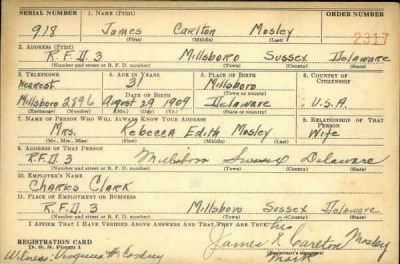 SERIAL NUMBER 1. NAME (Print) ORDER NUMBER
918 James Carlton Mosley 2317
(First) (Middle) (Last)
2. ADDRESS (Print)
R.F.D. 3 Millsboro Sussex Delaware
(Number and street or R. F. D. number) (Town) (County) (State)
3. TELEPHONE 4. AGE IN YEARS 5. PLACE OF BIRTH 6. COUNTRY OF CITIZENSHIP
nearest 31 Millsboro
DATE OF BIRTH (Town or county)
Millsboro 2896 August 29 1909 Delaware U.S.A.
(Exchange) (Number) (Mo.) (Day) (Yr.) (State or country)
7. NAME OF PERSON WHO WILL ALWAYS KNOW YOUR ADDRESS 8. RELATIONSHIP OF THAT PERSON
Mrs. Rebecca Edith Mosley Wife
(Mr., Mrs., Miss) (First) (Middle) (Last)
9. ADDRESS OF THAT PERSON
R.F.D. 3 Millsboro Sussex Delaware
(Number and street or R. F. D. number) (Town) (County) (State)
10. EMPLOYER'S NAME
Charles Clark
11. PLACE OF EMPLOYMENT OR BUSINESS
R.F.D. 3 Millsboro Sussex Delaware
(Number and street or R. F. D. number) (Town) (County) (State)
I AFFIRM THAT I HAVE VERIFIED ABOVE ANSWERS AND THAT THEY ARE TRUE. his
REGISTRATION CARD James X Carlton Mosley
D. S. S. Form 1 (Registrant's signature)
Witness: Virginia mark